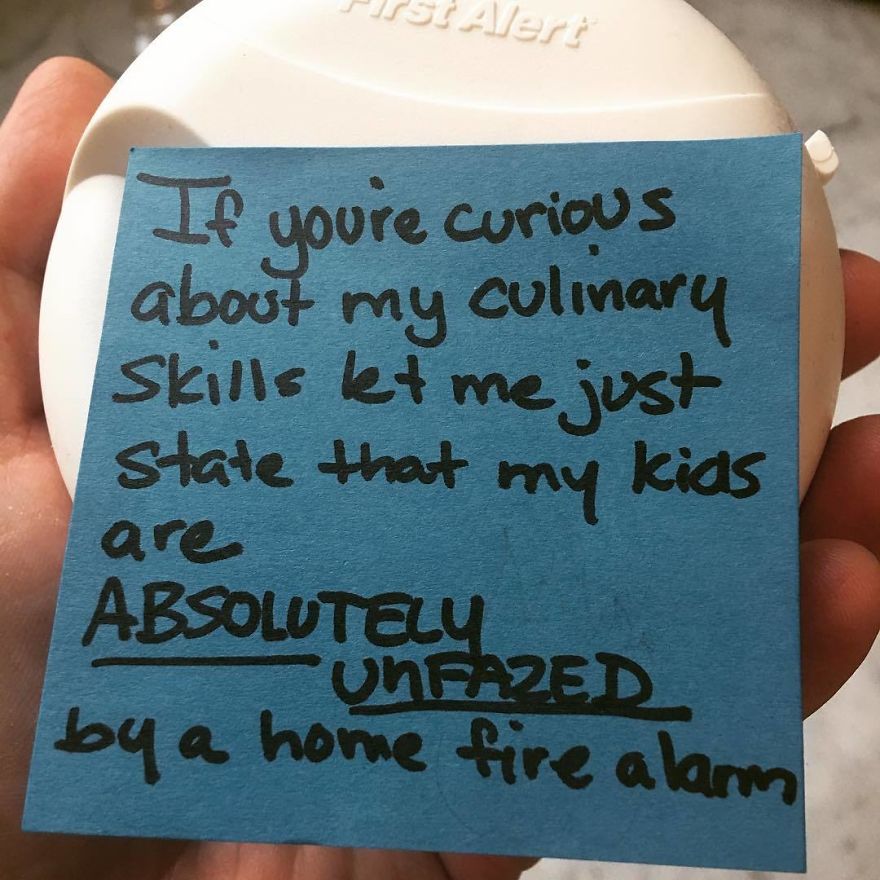 First Alert
If you're curious
about my culinary
skills let me just
state that my kids
are
ABSOLUTELY
UNFAZED
by a home fire alarm